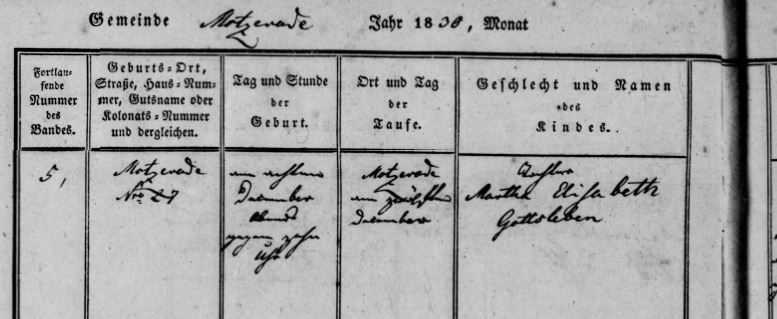 Gemeinde Motzerode Jahr 1830, Monat
Fortlau-
fende
Nummer
des
Bandes.
Geburts-Ort,
Straße, Haus-Num-
mer, Gutsname oder
Kolonats-Nummer
und dergleichen.
Tag und Stunde
der
Geburt.
Ort und Tag
der
Taufe.
Geschlecht und Namen
des
Kindes.
5,
Motzerode
Nro 27
am achten
December
Abends
gegen zehn
Uhr
Motzerode
am zwölften
December
Tochter
Martha Elisabeth
Gottsleben